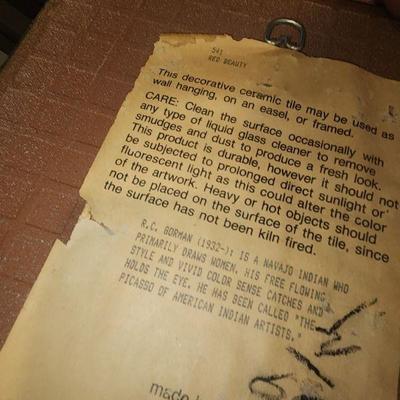 541
RED BEAUTY
This decorative ceramic tile may be used as
wall hanging, on an easel, or framed.
CARE: Clean the surface occasionally with
any type of liquid glass cleaner to remove
smudges and dust to produce a fresh look.
This product is durable, however it should not
be subjected to prolonged direct sunlight or
fluorescent light as this could alter the color
of the artwork. Heavy or hot objects should
not be placed on the surface of the tile, since
the surface has not been kiln fired.
R.C. GORMAN (1932-): IS A NAVAJO INDIAN WHO
PRIMARILY DRAWS WOMEN. HIS FREE FLOWING
STYLE AND VIVID COLOR SENSE CATCHES AND
HOLDS THE EYE. HE HAS BEEN CALLED "THE
PICASSO OF AMERICAN INDIAN ARTISTS."
made